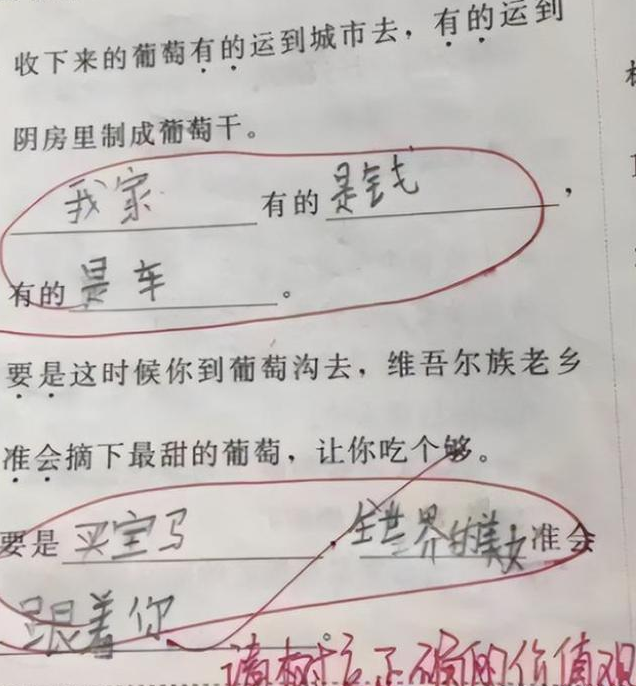 收下来的葡萄有的运到城市去，有的运到
阴房里制成葡萄干。
我家有的是钱，
有的是车。
要是这时候你到葡萄沟去，维吾尔族老乡
准会摘下最甜的葡萄，让你吃个够。
要是买宝马，全世界的美女准会
跟着你。
请树立正确的价值观